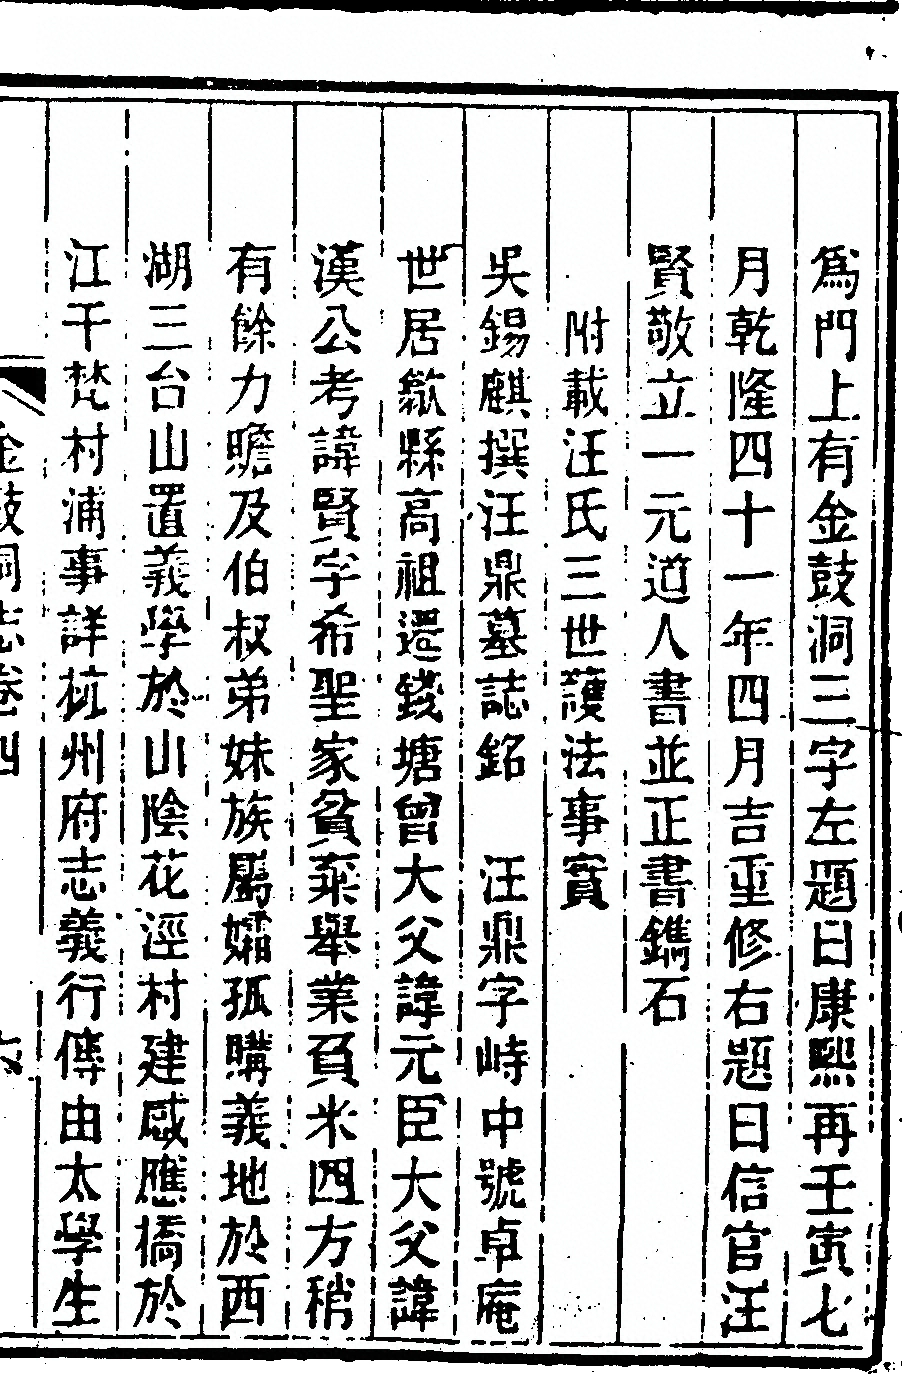 爲門上有金鼓洞三字左題曰康熙再壬寅七
月乾隆四十一年四月吉重修右題曰信官汪
賢敬立一元道人書並正書鐫石
附載汪氏三世護法事實
吳錫麒撰汪鼎墓誌銘　汪鼎字峙中號卓庵
世居歙縣高祖還錢塘曾大父諱元臣大父諱
漢公考諱賢字希聖家貧棄舉業負米四方稍
有餘力贍及伯叔弟妹族屬孀孤購義地於西
湖三台山置義學於山陰花涇村建感應橋於
江干梵村浦事詳杭州府志義行傳由太學生
金鼓洞志卷四